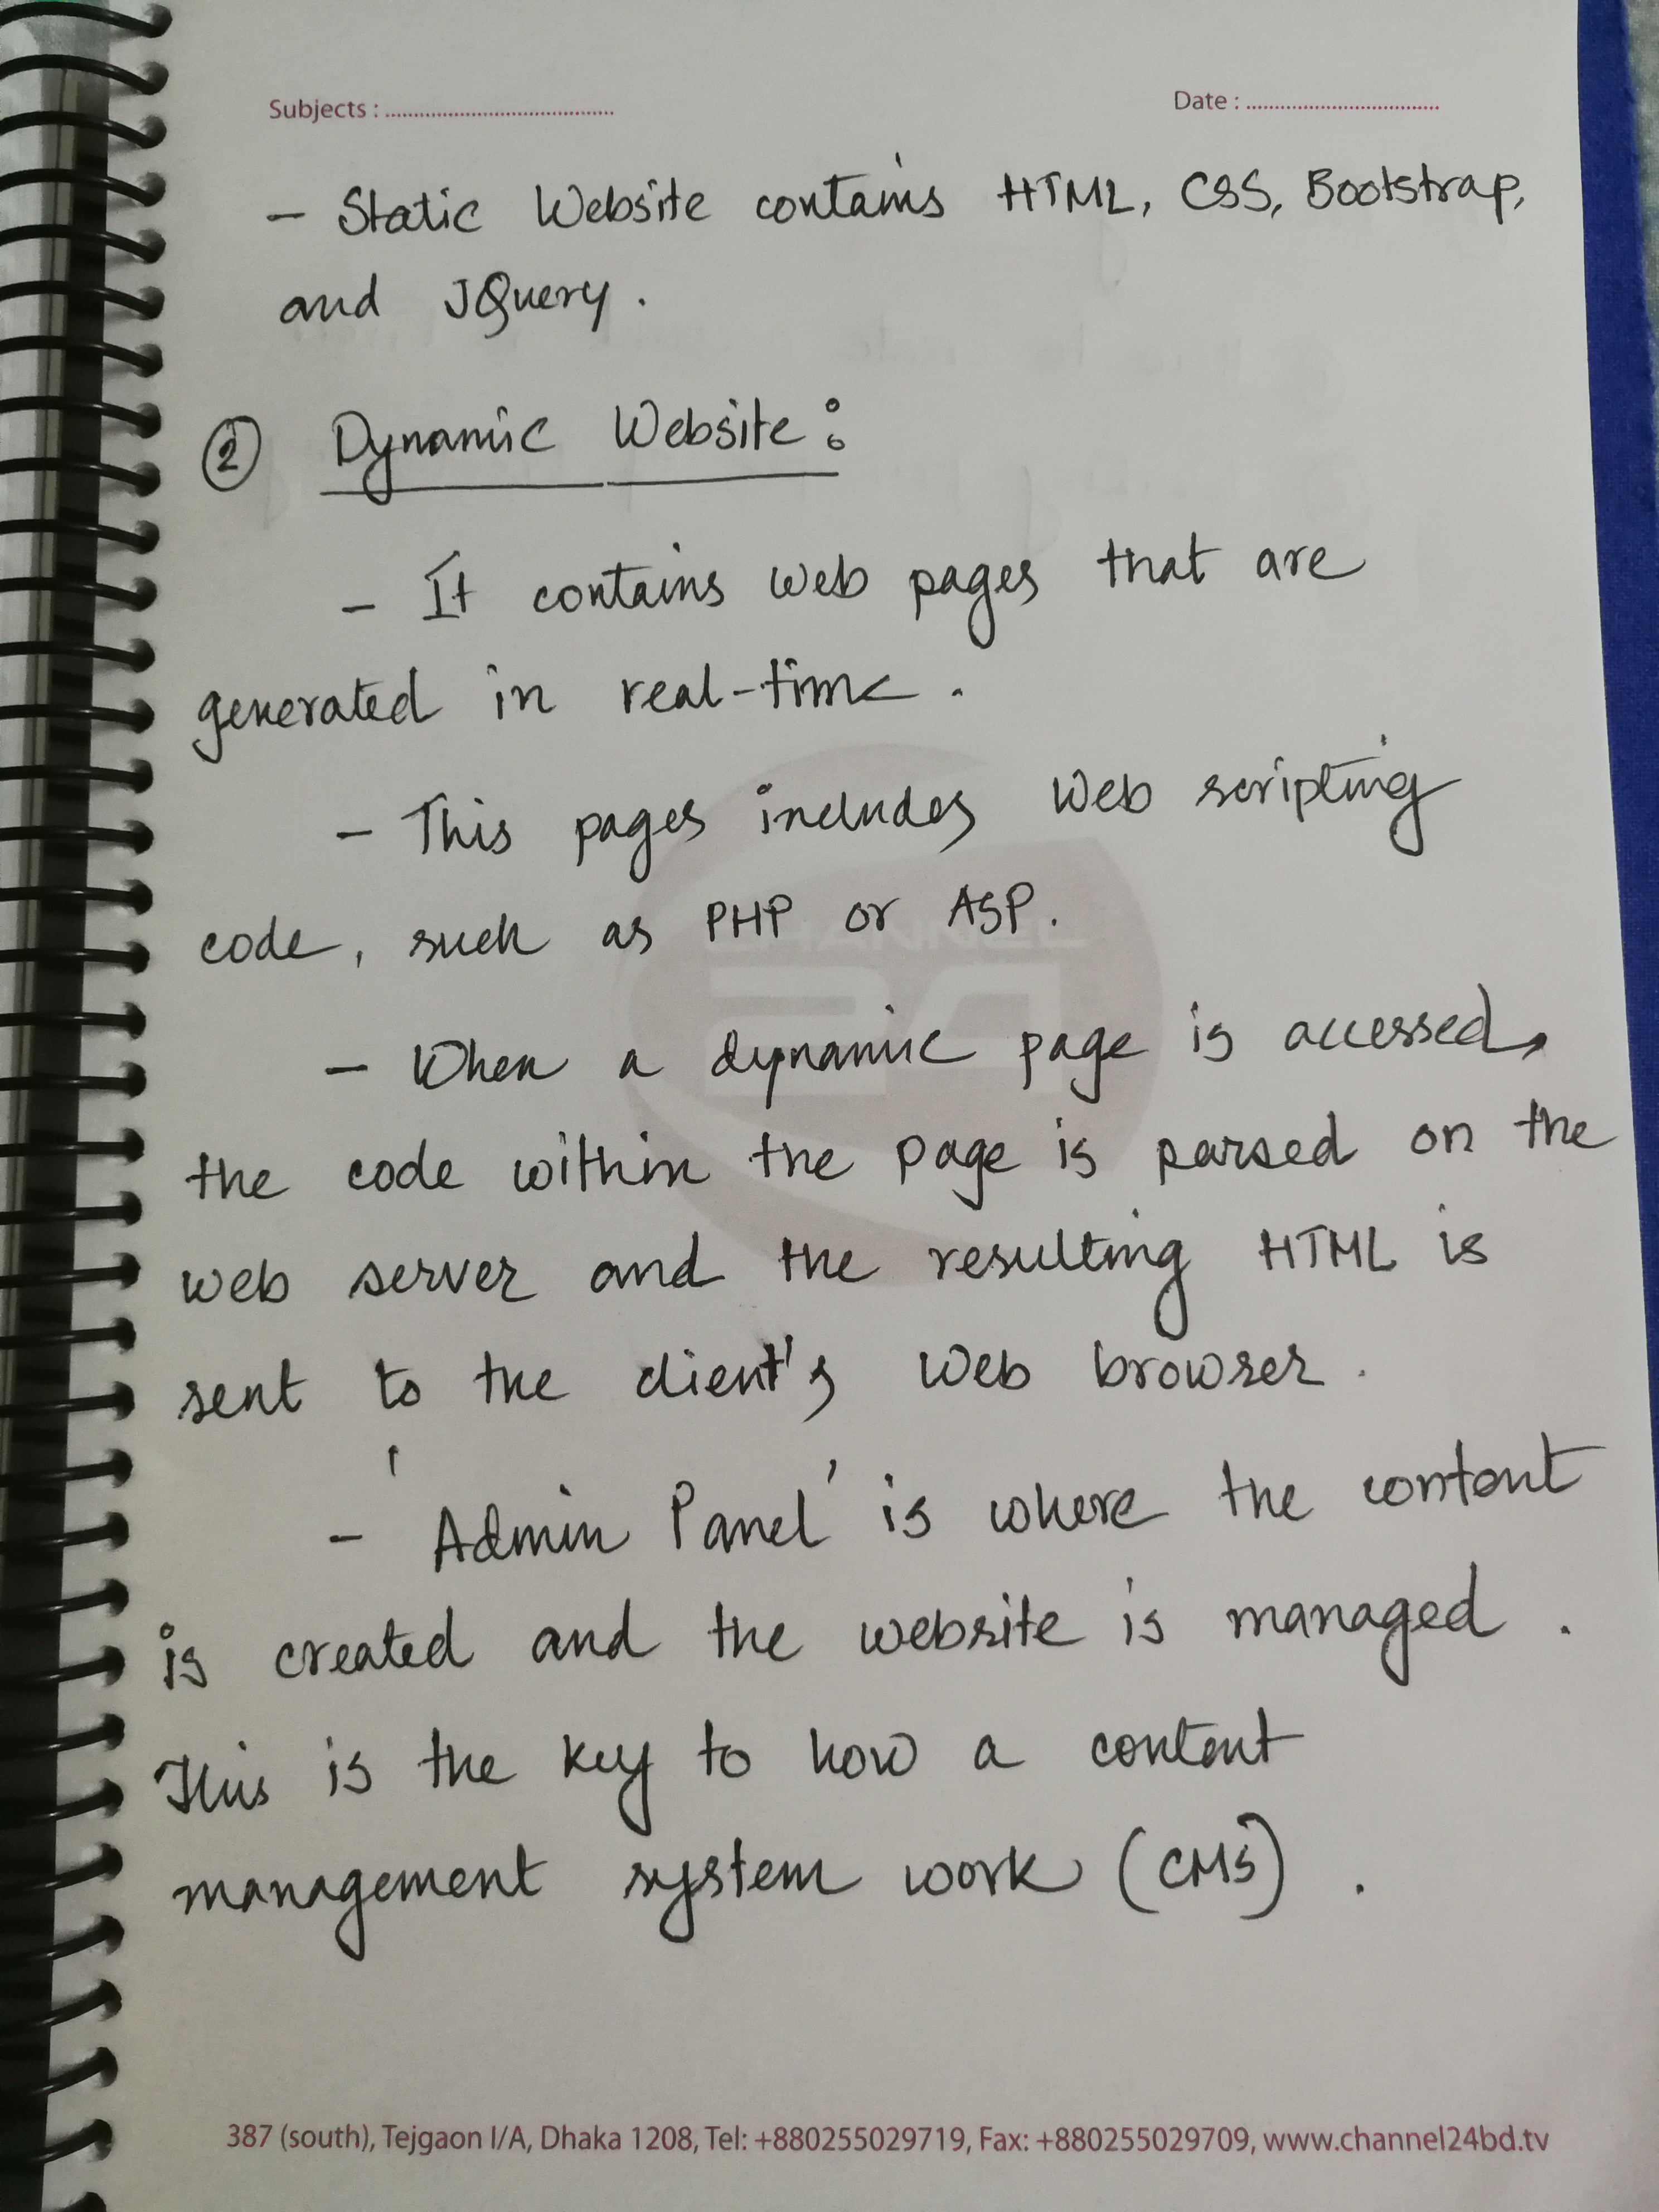 Subjects : ........................................ Date : ..................................
- Static Website contains HTML, CSS, Bootstrap,
and JQuery.
② Dynamic Website:
- It contains web pages that are
generated in real-time.
- This pages includes Web scripting
code, such as PHP or ASP.
CHANNEL
24
- When a dynamic page is accessed,
the code within the page is parsed on the
web server and the resulting HTML is
sent to the client's Web browser.
- 'Admin Panel' is where the content
is created and the website is managed.
This is the key to how a content
management system work (CMS).
387 (south), Tejgaon I/A, Dhaka 1208, Tel: +880255029719, Fax: +880255029709, www.channel24bd.tv